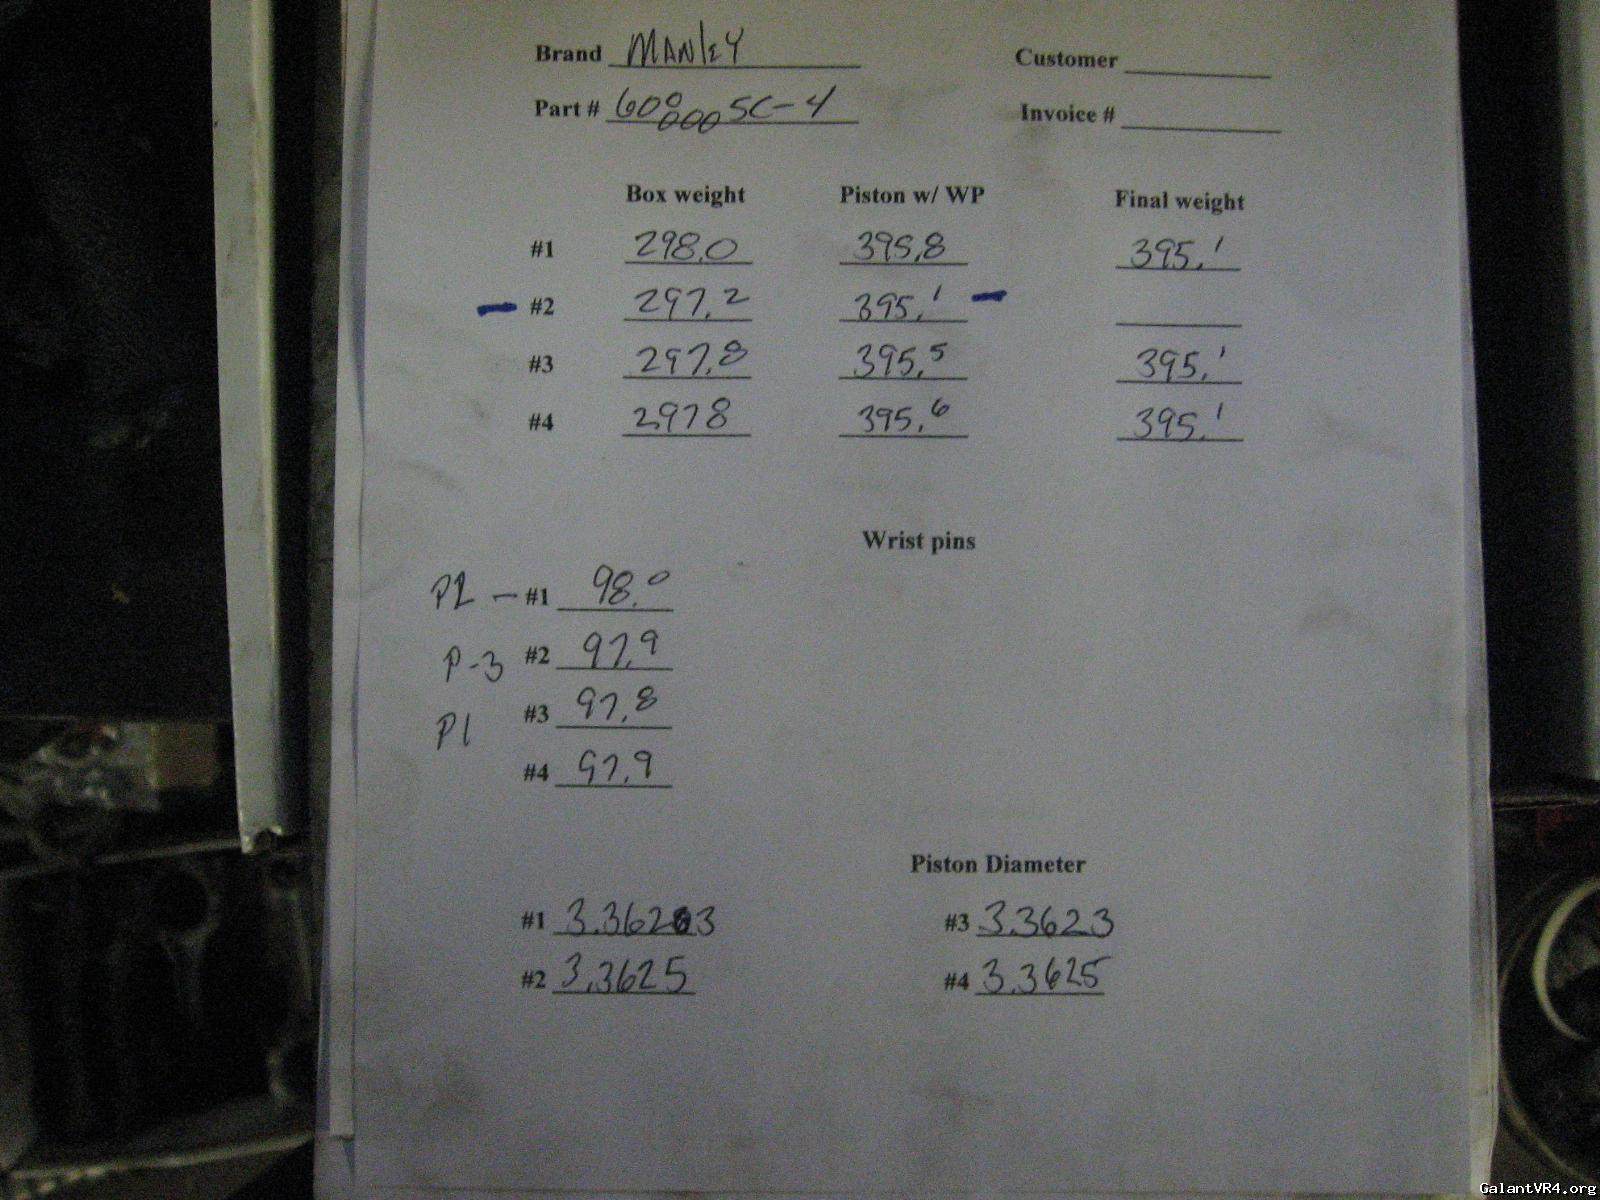 Brand MANlEY Customer
Part # 600 000 SC-4 Invoice #
Box weight Piston w/ WP Final weight
#1 298.0 395.8 395.1
#2 297.2 395.1
#3 297.8 395.5 395.1
#4 2978 395.6 395.1
Wrist pins
P2 - #1 98.0
P-3 #2 97.9
P1 #3 97.8
#4 97.9
Piston Diameter
#1 3.3623 #3 3.3623
#2 3.3625 #4 3.3625
GalantVR4.org